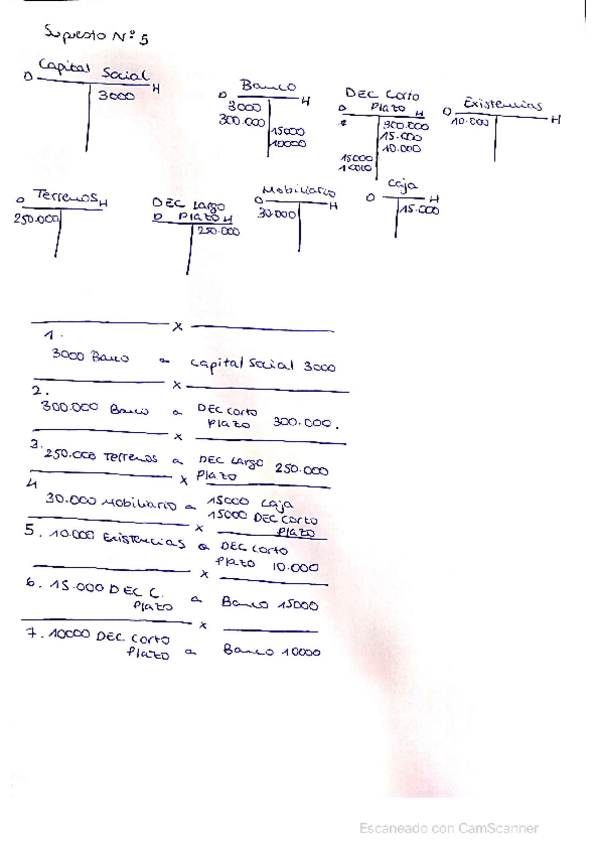 Supuesto Nº 5
Capital Social
D H
3000
Banco
D H
3000
300.000
15000
10000
DEC Corto
D Plazo H
300.000
15.000
10.000
15000
10000
Existencias
D H
10.000
Terrenos
D H
250.000
DEC Largo
D Plazo H
250.000
Mobiliario
D H
30.000
Caja
D H
15.000
x
1.
3000 Banco a Capital Social 3000
x
2.
300.000 Banco a DEC Corto
Plazo 300.000.
x
3.
250.000 Terrenos a DEC Largo 250.000
x Plazo
4
30.000 Mobiliario a 15000 Caja
15000 DEC Corto
x Plazo
5. 10.000 Existencias a DEC Corto
Plazo 10.000
x
6. 15.000 DEC C. a Banco 15000
Plazo
x
7. 10000 DEC Corto
Plazo a Banco 10000
Escaneado con CamScanner